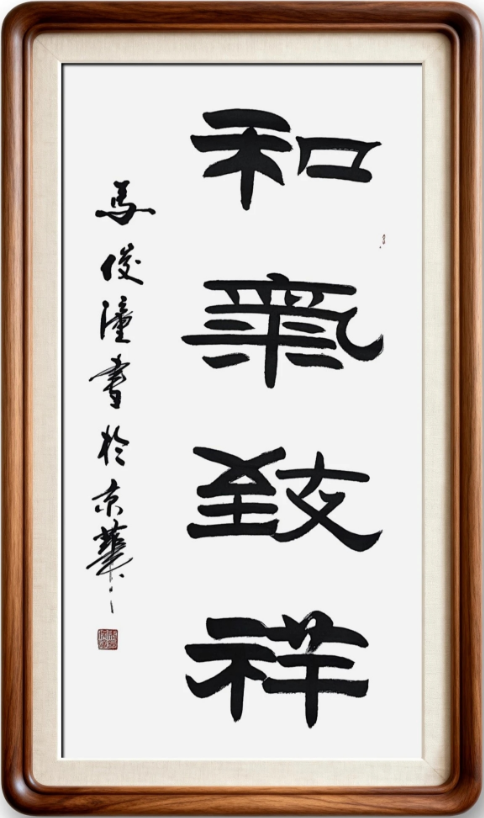 和氣致祥
馬俊潼書於京華